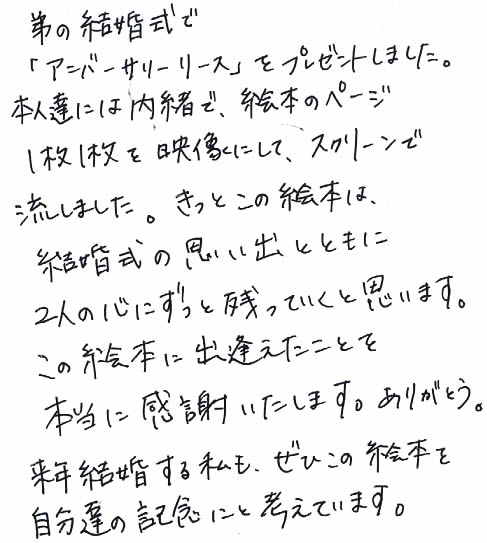 弟の結婚式で
「アニバーサリーリース」をプレゼントしました。
本人達には内緒で、絵本のページ
1枚1枚を映像にして、スクリーンで
流しました。きっとこの絵本は、
結婚式の思い出とともに
2人の心にずっと残っていくと思います。
この絵本に出逢えたことを
本当に感謝いたします。ありがとう。
来年結婚する私も、ぜひこの絵本を
自分達の記念にと考えています。